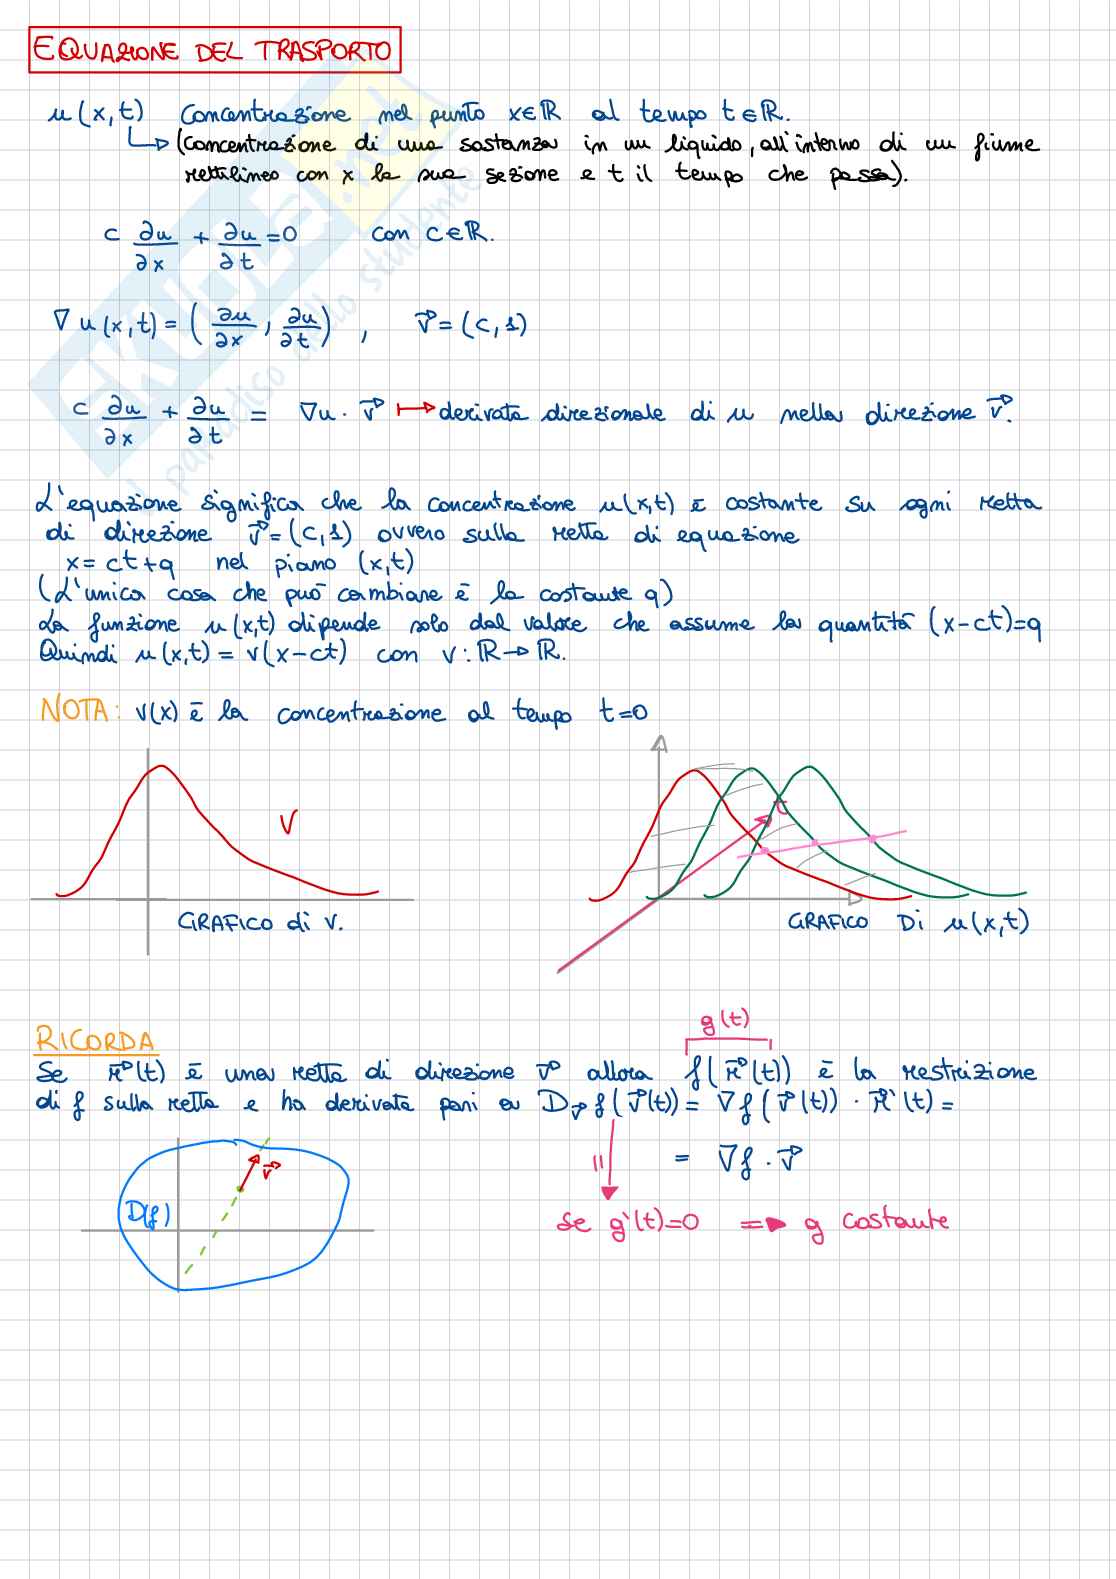 EQUAZIONE DEL TRASPORTO
u(x,t) concentrazione nel punto x∈ℝ al tempo t∈ℝ.
(concentrazione di una sostanza in un liquido, all'interno di un fiume
rettilineo con x la sua sezione e t il tempo che passa).
c ∂u/∂x + ∂u/∂t = 0 con c∈ℝ.
∇u(x,t) = (∂u/∂x, ∂u/∂t), v⃗ = (c,1)
c ∂u/∂x + ∂u/∂t = ∇u · v⃗ ↦ derivata direzionale di u nella direzione v⃗.
L'equazione significa che la concentrazione u(x,t) è costante su ogni retta
di direzione v⃗ = (c,1) ovvero sulla retta di equazione
x = ct+q nel piano (x,t)
(L'unica cosa che può cambiare è la costante q)
La funzione u(x,t) dipende solo dal valore che assume la quantità (x-ct)=q
Quindi u(x,t) = v(x-ct) con v: ℝ→ℝ.
NOTA: v(x) è la concentrazione al tempo t=0
V
t
GRAFICO di v.
GRAFICO Di u(x,t)
g(t)
RICORDA
Se r⃗(t) è una retta di direzione v⃗ allora f(r⃗(t)) è la restrizione
di f sulla retta e ha derivata pari a D_v⃗ f(v⃗(t)) = ∇f(v⃗(t)) · r⃗'(t) =
= ∇f · v⃗
v⃗
D(f)
=
Se g'(t)=0 ⇒ g costante
SKUOLA.net
il paradiso dello studente